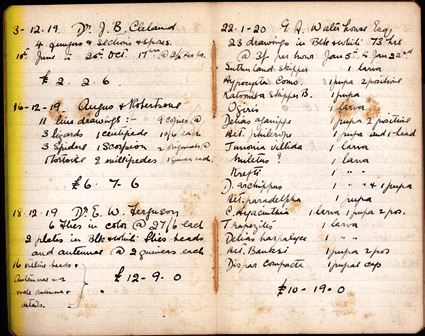 3-12.19. Dr J. B. Cleland
4 gungers & section & spores.
18th June to 26th Oct. 17 hrs @ 2/6 per hr.
£ 2. 2. 6.
16-12-19. Angus & Robertson
11 line drawings :- 9 copies @
3 lizards 1 centipede 10/6 each
3 Spiders 1 Scorpion 2 originals @
1 tortoise 2 millipedes 1 guinea each.
£6. 7. 6
18.12.19 Dr E. W. Ferguson
6 flies in color @ 27/6 each
2 plates in Blk & white flies heads
and antennae @ 2 guineas each
16 outline heads &
antennae &
wide antennae &
details.
£12-9.0
22.1-20 G. A. Waterhouse Esq.
23 drawings in Blk & white 73 hrs
@ 3/- per hour Jan 5th to Jan 22nd
Sutherland Skipper 1 larva
Hypocysta Comp. 1 pupa 2 positions
Katoomba Skipper B. 1 pupa
Ogyris 1 larva
Delias aganippe 1 pupa 2 positions
Het. philerope 1 pupa and 1 head
Junonia villida 1 larva
Miletus ? 1 larva
Krafti 1 " "
D. archippus 1 " " & 1 pupa
Het. paradelpha 1 pupa
C. Hyacinthina 1 larva 1 pupa 2 pos.
Trapezites 1 larva
Delias harpalyce 1 " "
Het. Banksi 1 pupa 2 pos
Dispar Compacta 1 pupal cap
£10-19-0